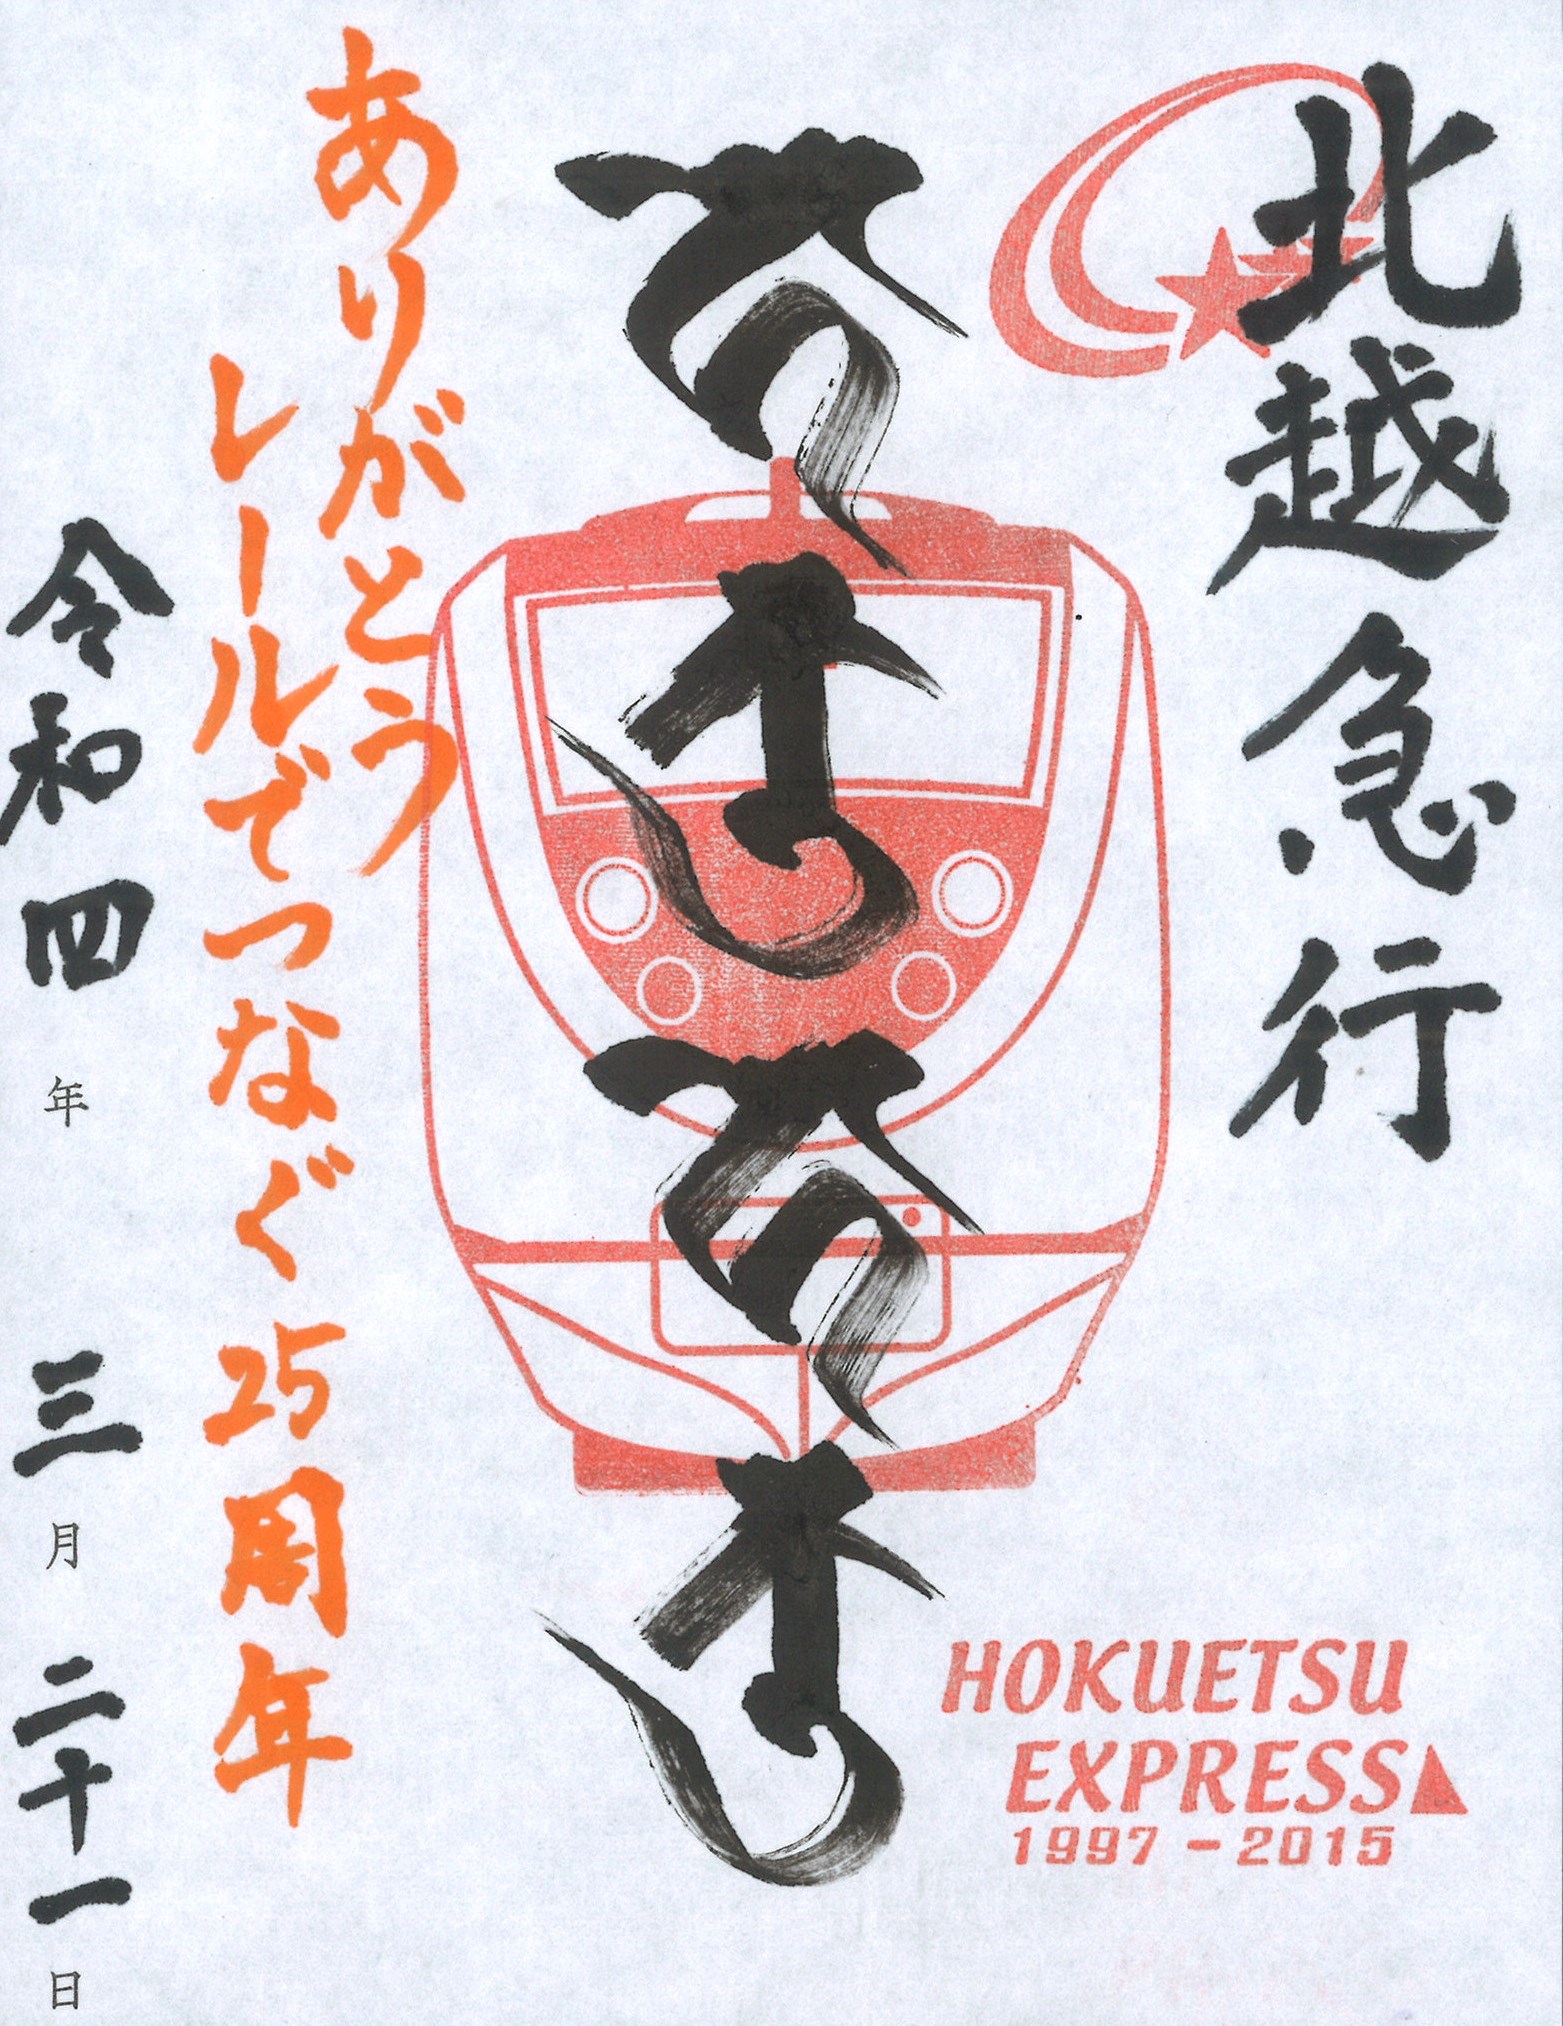 北越急行
HOKUETSU
EXPRESS▲
1997-2015
ありがとう
レールでつなぐ25周年
令和四年三月二十一日